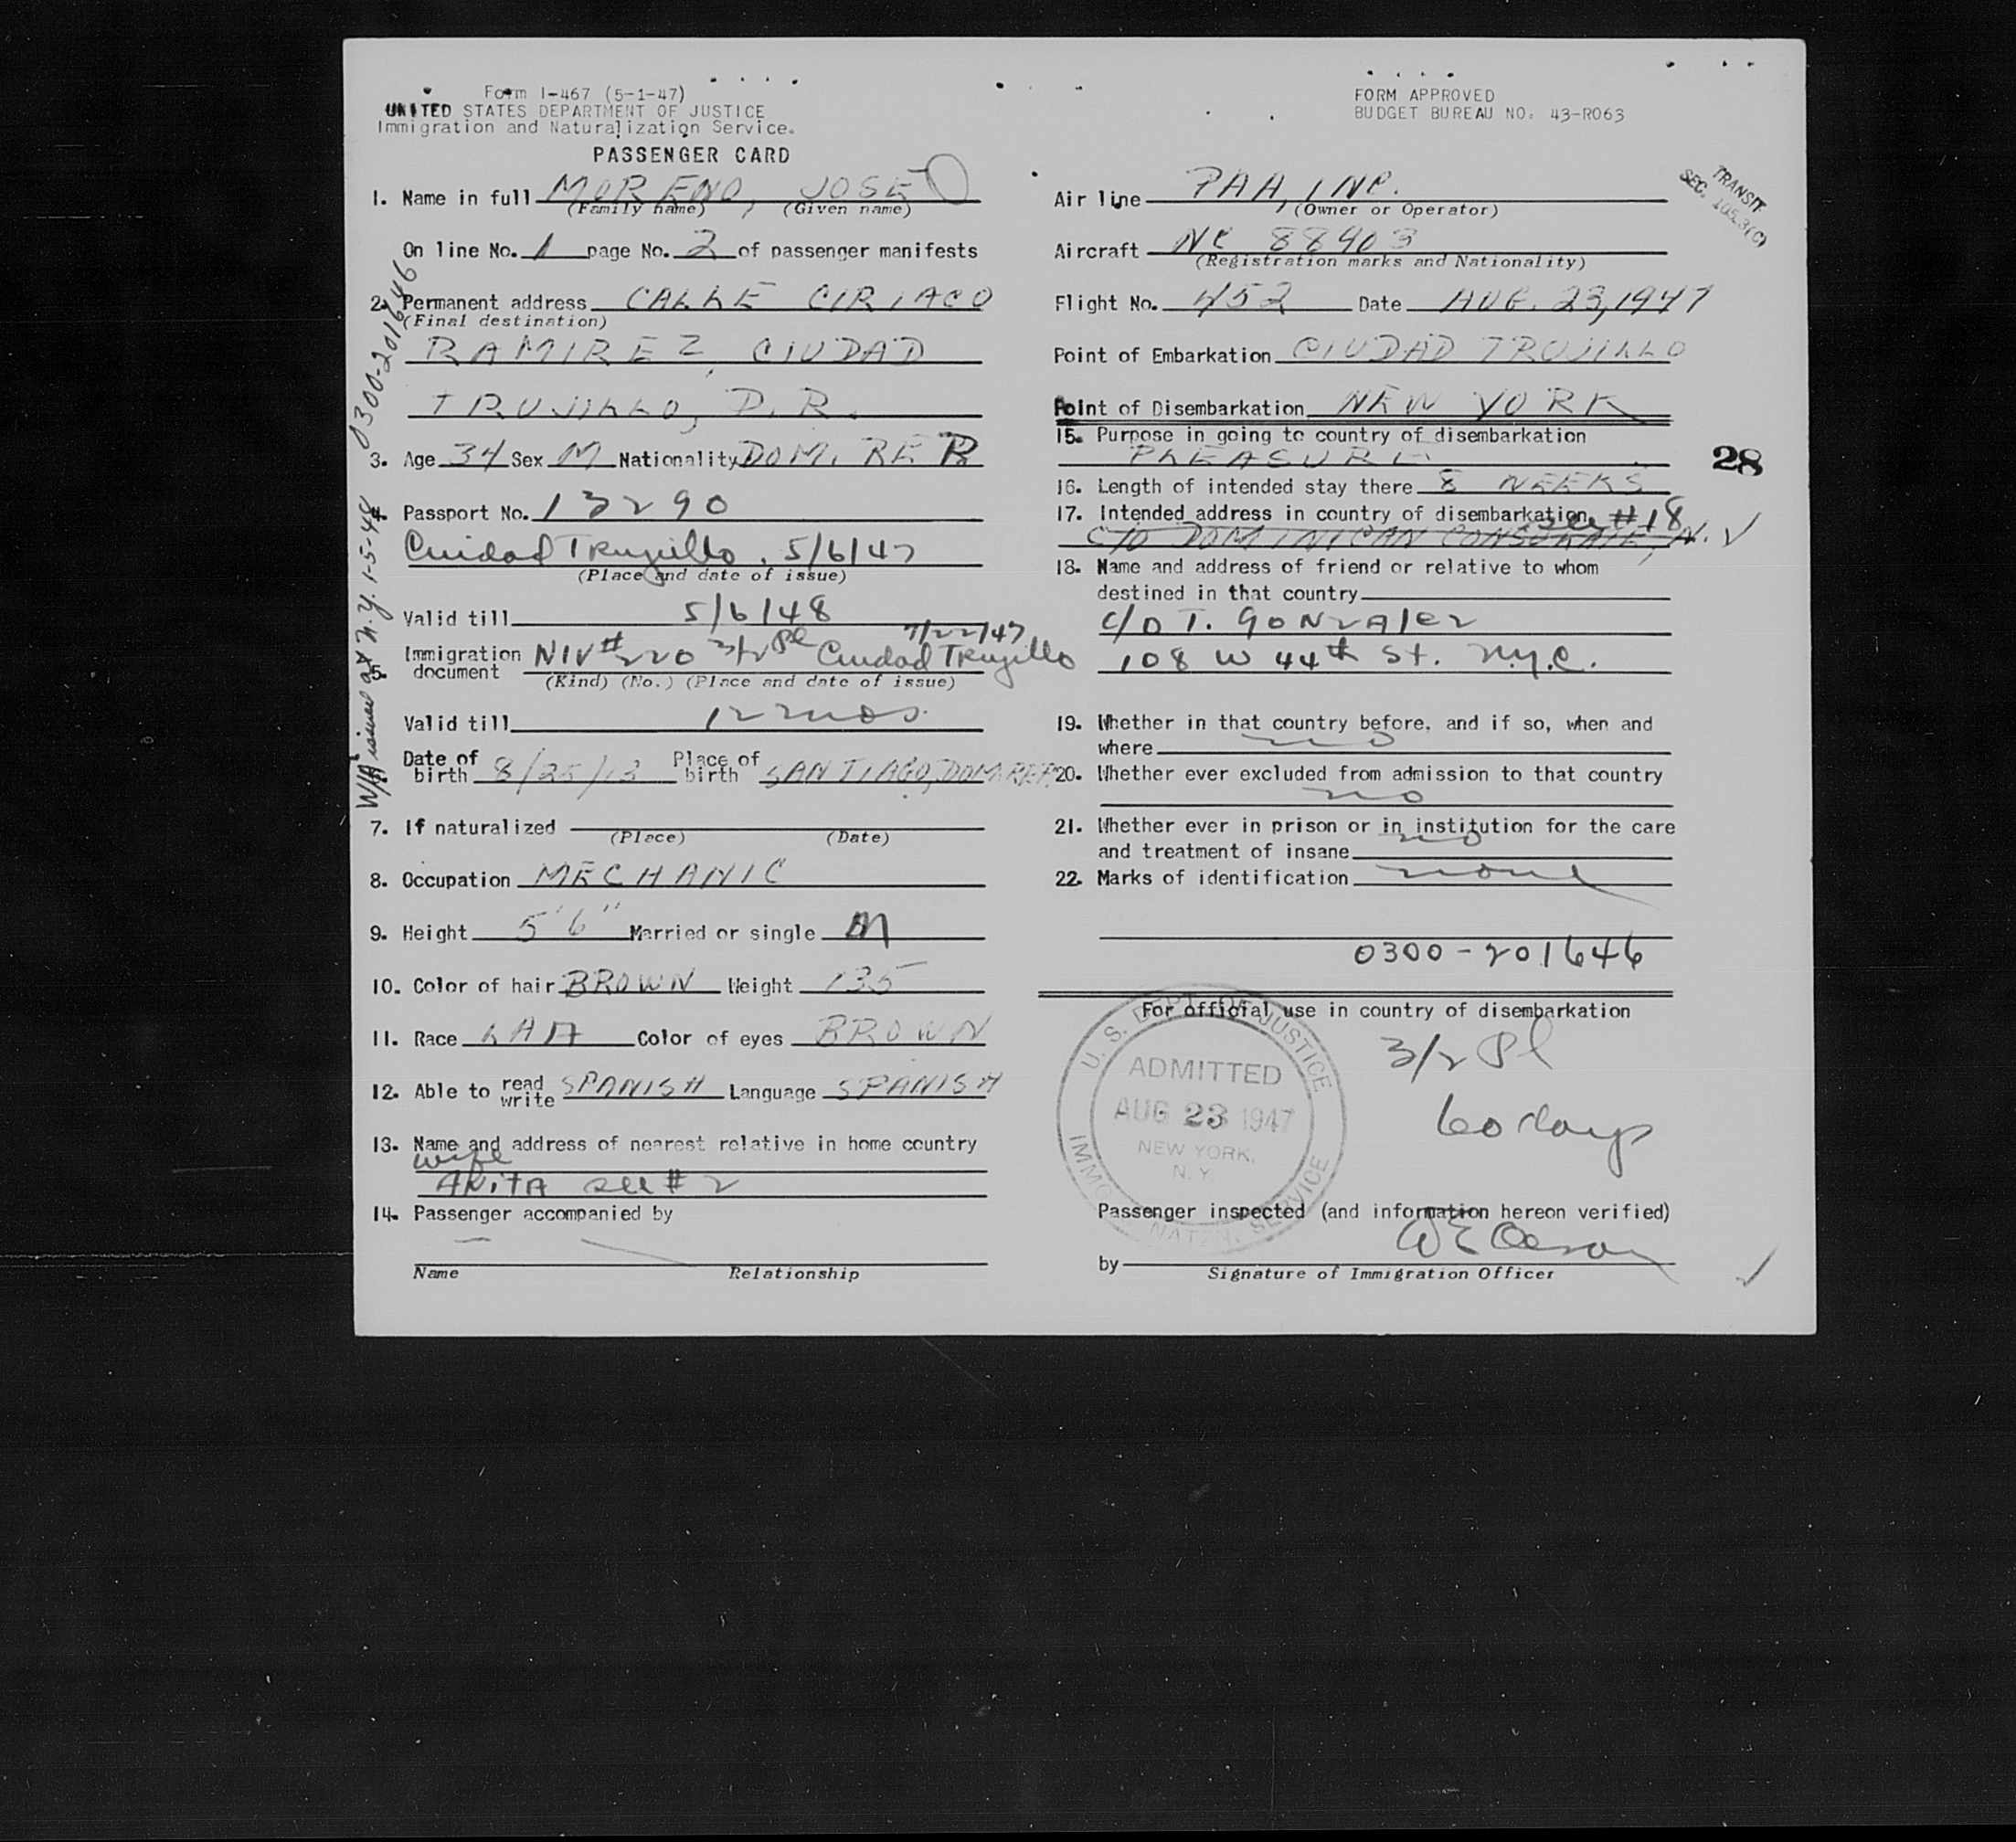 Form I-467 (5-1-47)
UNITED STATES DEPARTMENT OF JUSTICE
Immigration and Naturalization Service.
PASSENGER CARD
1. Name in full MORENO, JOSE
(Family name) (Given name)
On line No. 1 page No. 2 of passenger manifests
2. Permanent address CALLE CIRIACO
(Final destination)
RAMIREZ, CIUDAD
TRUJILLO, D.R.
3. Age 34 Sex M Nationality DOM. REP
4. Passport No. 13290
Ciudad Trujillo, 5/6/47
(Place and date of issue)
Valid till 5/6/48
7/22/47
5. Immigration document NIV # 220 3/2 Pl Ciudad Trujillo
(Kind) (No.) (Place and date of issue)
Valid till 12 mos.
Date of birth 8/25/13 Place of birth SANTIAGO, DOM. REP.
7. If naturalized
(Place) (Date)
8. Occupation MECHANIC
9. Height 5'6" Married or single M
10. Color of hair BROWN Weight 135
11. Race LAA Color of eyes BROWN
12. Able to read write SPANISH Language SPANISH
13. Name and address of nearest relative in home country
wife
ANITA see # 2
14. Passenger accompanied by
Name Relationship
W/A issued at N.Y. 1-5-48 0300-201646
FORM APPROVED
BUDGET BUREAU NO. 43-R063
TRANSIT
SEC. 105.3(C)
Air line PAA, INC.
(Owner or Operator)
Aircraft NC 88903
(Registration marks and Nationality)
Flight No. 452 Date AUG. 23, 1947
Point of Embarkation CIUDAD TRUJILLO
Point of Disembarkation NEW YORK
15. Purpose in going to country of disembarkation
PLEASURE
28
16. Length of intended stay there 8 WEEKS
17. Intended address in country of disembarkation see #18
C/O DOMINICAN CONSULATE, N.Y
18. Name and address of friend or relative to whom
destined in that country
c/o T. GONZALEZ
108 W 44th St. N.Y.C.
19. Whether in that country before, and if so, when and
where no
20. Whether ever excluded from admission to that country
no
21. Whether ever in prison or in institution for the care
and treatment of insane no
22. Marks of identification none
0300-201646
For official use in country of disembarkation
U. S. DEPT. OF JUSTICE
ADMITTED
AUG 23 1947
NEW YORK,
N. Y.
IMMIG. NATZ'N. SERVICE
3/2 Pl
60 days
Passenger inspected (and information hereon verified)
by
Signature of Immigration Officer